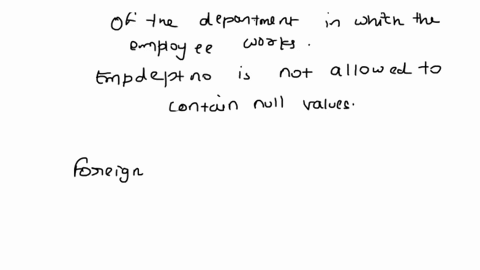 Of the department in which the
employee works.
Empdeptno is not allowed to
contain null values.
Foreign